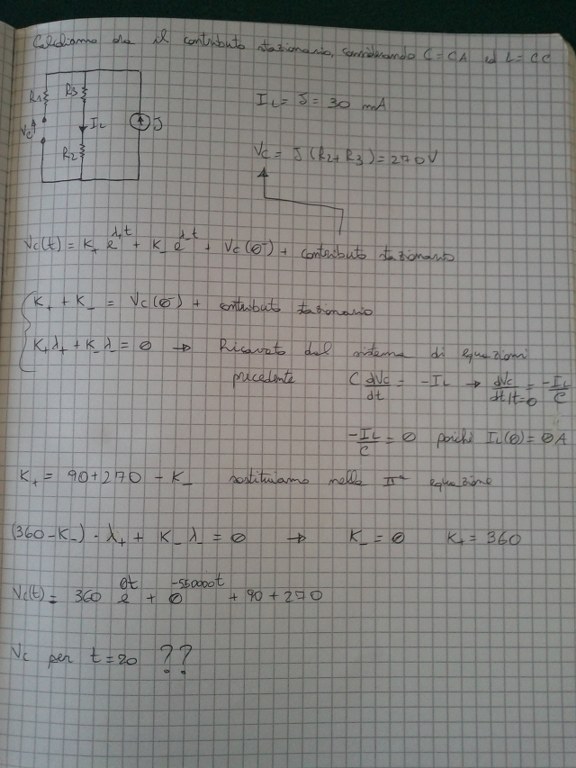 Calcoliamo ora il contributo stazionario, considerando C = CA ed L = CC
R1 R3
IL J
Vc
R2
IL = J = 30 mA
Vc = J (R2 + R3) = 270 V
Vc(t) = K+ e^λ+t + K- e^λ-t + Vc(0-) + contributo stazionario
K+ + K- = Vc(0-) + contributo stazionario
K+λ+ + K-λ- = 0 → Ricavato dal sistema di equazioni
precedente C dVc/dt = -IL → dVc/dt|t=0 = -IL/C
-IL/C = 0 poiché IL(0) = 0A
K+ = 90+270 - K- sostituiamo nella IIª equazione
(360-K-) · λ+ + K- λ- = 0 → K- = 0 K+ = 360
Vc(t) = 360 e^0t + 0^-550000t + 90 + 270
Vc per t=20 ??